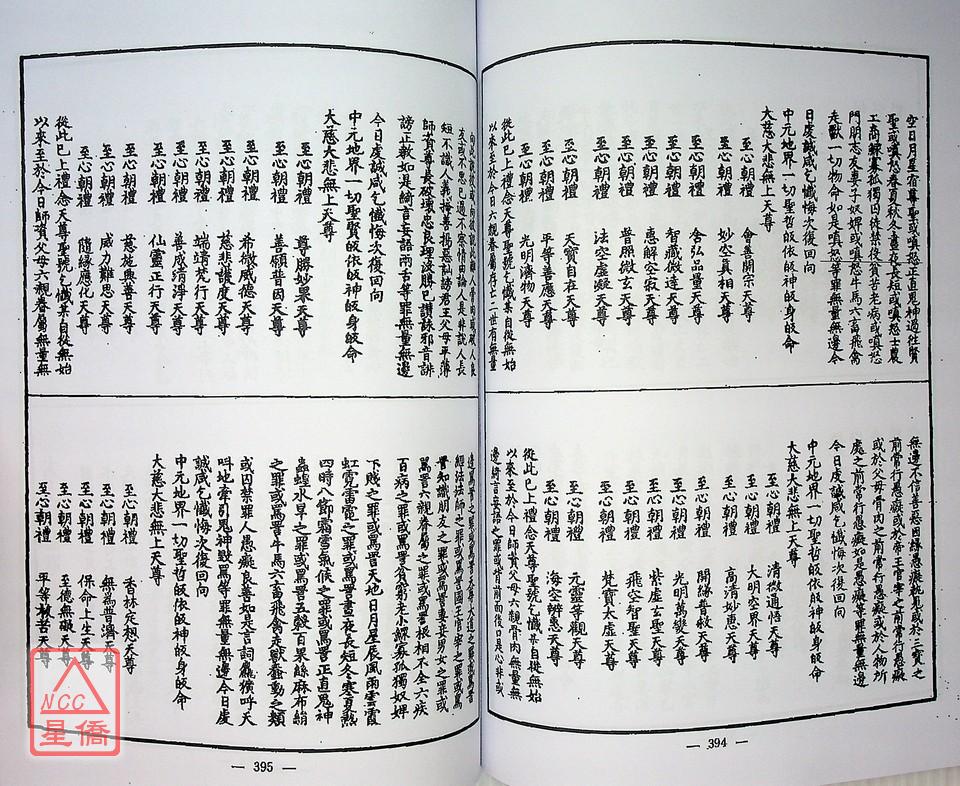 空日月星宿尊聖或嗔怒正直鬼神過往賢
聖或嗔怒春夏秋冬晝夜長短或嗔怒士農
工商鰥寡孤獨囚徒禁役貧苦老病或嗔怒
門朋志友妻子奴婢或嗔怒牛馬六畜飛禽
走獸一切物命如是嗔怒等罪無量無邊今
日虔誠咸乞懺悔次復回向
中元地界一切聖哲皈依皈神皈身皈命
大慈大悲無上天尊
至心朝禮 會善開宗天尊
至心朝禮 妙空真相天尊
至心朝禮 含弘品量天尊
至心朝禮 智藏微連天尊
至心朝禮 惠解空寂天尊
至心朝禮 普照微玄天尊
至心朝禮 法空虛凝天尊
至心朝禮 天寶自在天尊
至心朝禮 平等善應天尊
至心朝禮 光明濟物天尊
從此已上禮念天尊聖號乞懺某自從無始
以來至於今日六親眷屬存亡一世有無量
無邊不信善惡因緣愚癡執見或於三寶之
前常行愚癡或於帝王官宰之前常行愚癡
或於父母骨肉之前常行愚癡或於人物所
處之前常行愚癡如是愚癡等罪無量無邊
今日虔誠咸乞懺悔次復回向
中元地界一切聖哲皈依皈神皈身皈命
大慈大悲無上天尊
至心朝禮 清微通悟天尊
至心朝禮 大明空界天尊
至心朝禮 高清妙思天尊
至心朝禮 開緣普救天尊
至心朝禮 光明萬變天尊
至心朝禮 紫虛玄皇天尊
至心朝禮 飛空智聖天尊
至心朝禮 梵寶太虛天尊
至心朝禮 元靈等觀天尊
至心朝禮 海空辨惠天尊
從此已上禮念天尊聖號乞懺某自從無始
以來至於今日師資父母六親骨肉無量無
邊綺言妄語之罪或背前面後口是心非或
— 394 —
友部不思己過不察情由論人是非說人長
短不識人義掩善揚惡訕謗君王父母平薄
師資尊長破壞忠良理沒勝已讚詠邪音誹
謗正教如是綺言妄語兩舌等罪無量無邊
今日虔誠咸乞懺悔次復回向
中元地界一切聖賢皈依皈神皈身皈命
大慈大悲無上天尊
至心朝禮 尊勝妙果天尊
至心朝禮 善願普因天尊
至心朝禮 希微威德天尊
至心朝禮 慈悲護度天尊
至心朝禮 端靖梵行天尊
至心朝禮 善成清淨天尊
至心朝禮 仙靈正行天尊
至心朝禮 慈施興善天尊
至心朝禮 威力難思天尊
至心朝禮 隨緣應化天尊
從此已上禮念天尊聖號乞懺某自從無始
以來至於今日師資父母六親眷屬無量無
經法法師之罪或罵詈國王官宰之罪或罵
詈知識朋友之罪或罵詈妻妾男女之罪或
罵詈六親眷屬之罪或罵詈根相不全六疾
百病之罪或罵詈貧窮老小鰥寡孤獨奴婢
下賤之罪或罵詈天地日月星辰風雨雲霞
虹霓雷電之罪或罵詈晝夜長短冬寒夏熱
四時八節霜雪氣候之罪或罵詈正直鬼神
蟲蝗水旱之罪或罵詈五穀百果絲麻布絹
之罪或罵詈牛馬六畜飛禽走獸蠢動之類
或囚禁罪人愚癡良善如是言詞麤獷呼天
叫地牽引鬼神毀罵等罪無量無邊今日虔
誠咸乞懺悔次復回向
中元地界一切聖哲皈依皈神皈身皈命
大慈大悲無上天尊
至心朝禮 香林定想天尊
至心朝禮 無為普濟天尊
至心朝禮 保命上生天尊
至心朝禮 至德無礙天尊
至心朝禮 平等救苦天尊
— 395 —
NCC
星僑